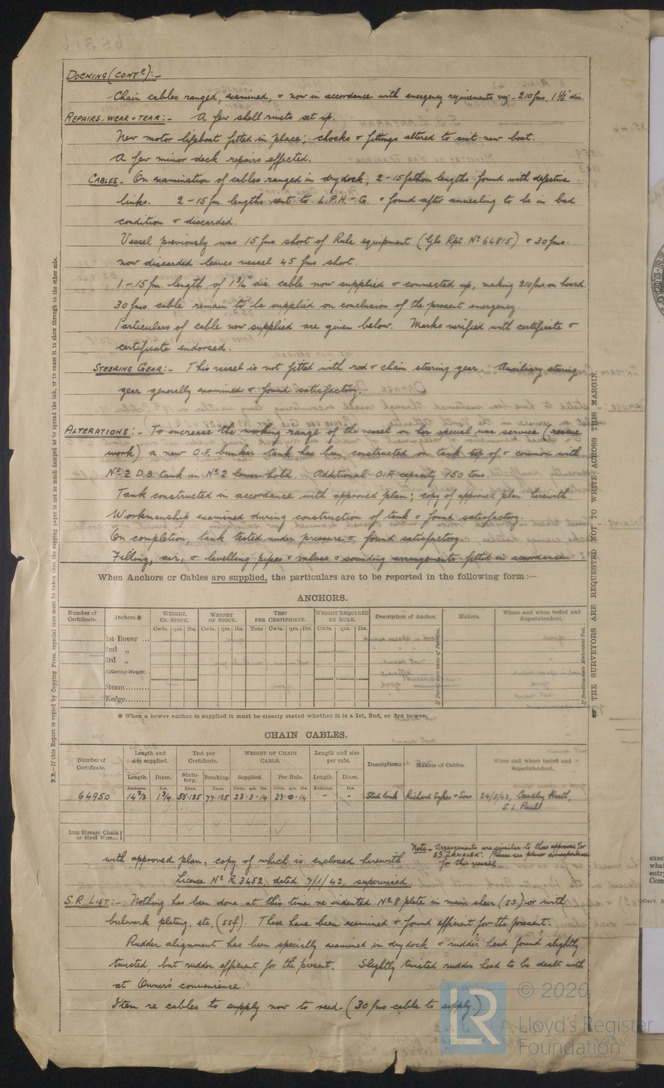 DOCKING (CONTD):-
Chain cables ranged, examined, & now in accordance with emergency requirements viz. 210 fms, 1 1/2" dia.
REPAIRS. WEAR & TEAR:- A few shell rivets set up.
New motor lifeboat fitted in place; chocks & fittings altered to suit new boat.
A few minor deck repairs effected.
CABLES. On examination of cables ranged in dry dock, 2 - 15 fathom lengths found with defective
links. 2 - 15 fm lengths sent to L.P.H. & found after annealing to be in bad
condition & discarded.
Vessel previously was 15 fms short of Rule equipment (Gls Rpt. No 64815) & 30 fms
now discarded leaves vessel 45 fms short.
1 - 15 fm. length of 1 3/4 dia cable now supplied & connected up, making 210 fms on board.
30 fms cable remain to be supplied on conclusion of the present emergency.
Particulars of cable now supplied are given below. Marks verified with certificate &
certificate endorsed.
STEERING GEAR:- This vessel is not fitted with rod & chain steering gear. Auxiliary steering
gear generally examined & found satisfactory.
ALTERATIONS:- To increase the working range of the vessel on her special war service (rescue
work) a new O.F. bunker tank has been constructed on tank top of & common with
No 2 D.B tank in No 2 lower hold. Additional O.F. capacity 150 tons.
Tank constructed in accordance with approved plan; copy of approved plan herewith
Workmanship examined during construction of tank & found satisfactory
On completion, tank tested under pressure & found satisfactory.
Filling, air, & levelling pipes & valves & sounding arrangements fitted in accordance
When Anchors or Cables are supplied, the particulars are to be reported in the following form:—
ANCHORS.
Number of Certificate. Anchors.* WEIGHT, EX. STOCK. WEIGHT OF STOCK. TEST PER CERTIFICATE. WEIGHT REQUIRED BY RULE. Description of Anchor. Makers. Where and when tested and Superintendent.
Cwts. qrs. lbs. Cwts. qrs. lbs. Tons Cwts. qrs. lbs. Cwts. qrs. lbs.
1st Bower ...
2nd „
3rd „
Collective Weight.
Stream
Kedge
* When a bower anchor is supplied it must be clearly stated whether it is a 1st, 2nd, or 3rd bower.
CHAIN CABLES.
Number of Certificate. Length and size supplied. Test per Certificate. WEIGHT OF CHAIN CABLE. Length and size per rule. Description Makers of Cables. Where and when tested and Superintendent.
Length. Diam. Statutory. Breaking. Supplied. Per Rule. Length. Diam.
64950 14 3/4 1 3/4 55·125 77·125 23-3-14 23-0-14 - - Stud link Richard Sykes & Son 24/2/42, Cradley Heath,
Iron Stream Chain or Steel Wire
Note - Arrangements are similar to those approved for
with approved plan, copy of which is enclosed herewith.
Licence No R 3452 dated 7/1/42, supervised
S.R LIST:- Nothing has been done at this time re indented No 8 plate in main sheer (53) or with
bulwark plating, etc, (55f). These have been examined & found efficient for the present.
Rudder alignment has been specially examined in dry dock & rudder head found slightly
twisted, but rudder efficient for the present. Slightly twisted rudder head to be dealt with
at Owner's convenience
Item re cables to supply now to read - (30 fms cable to supply)
N.B.—If this Report is copied by Copying Press, especial care must be taken that the copying paper is not so much damped as to spread the ink, or to cause it to show through to the other side.
THE SURVEYORS ARE REQUESTED NOT TO WRITE ACROSS THIS MARGIN.
© 2020
LR
Lloyd's Register
Foundation